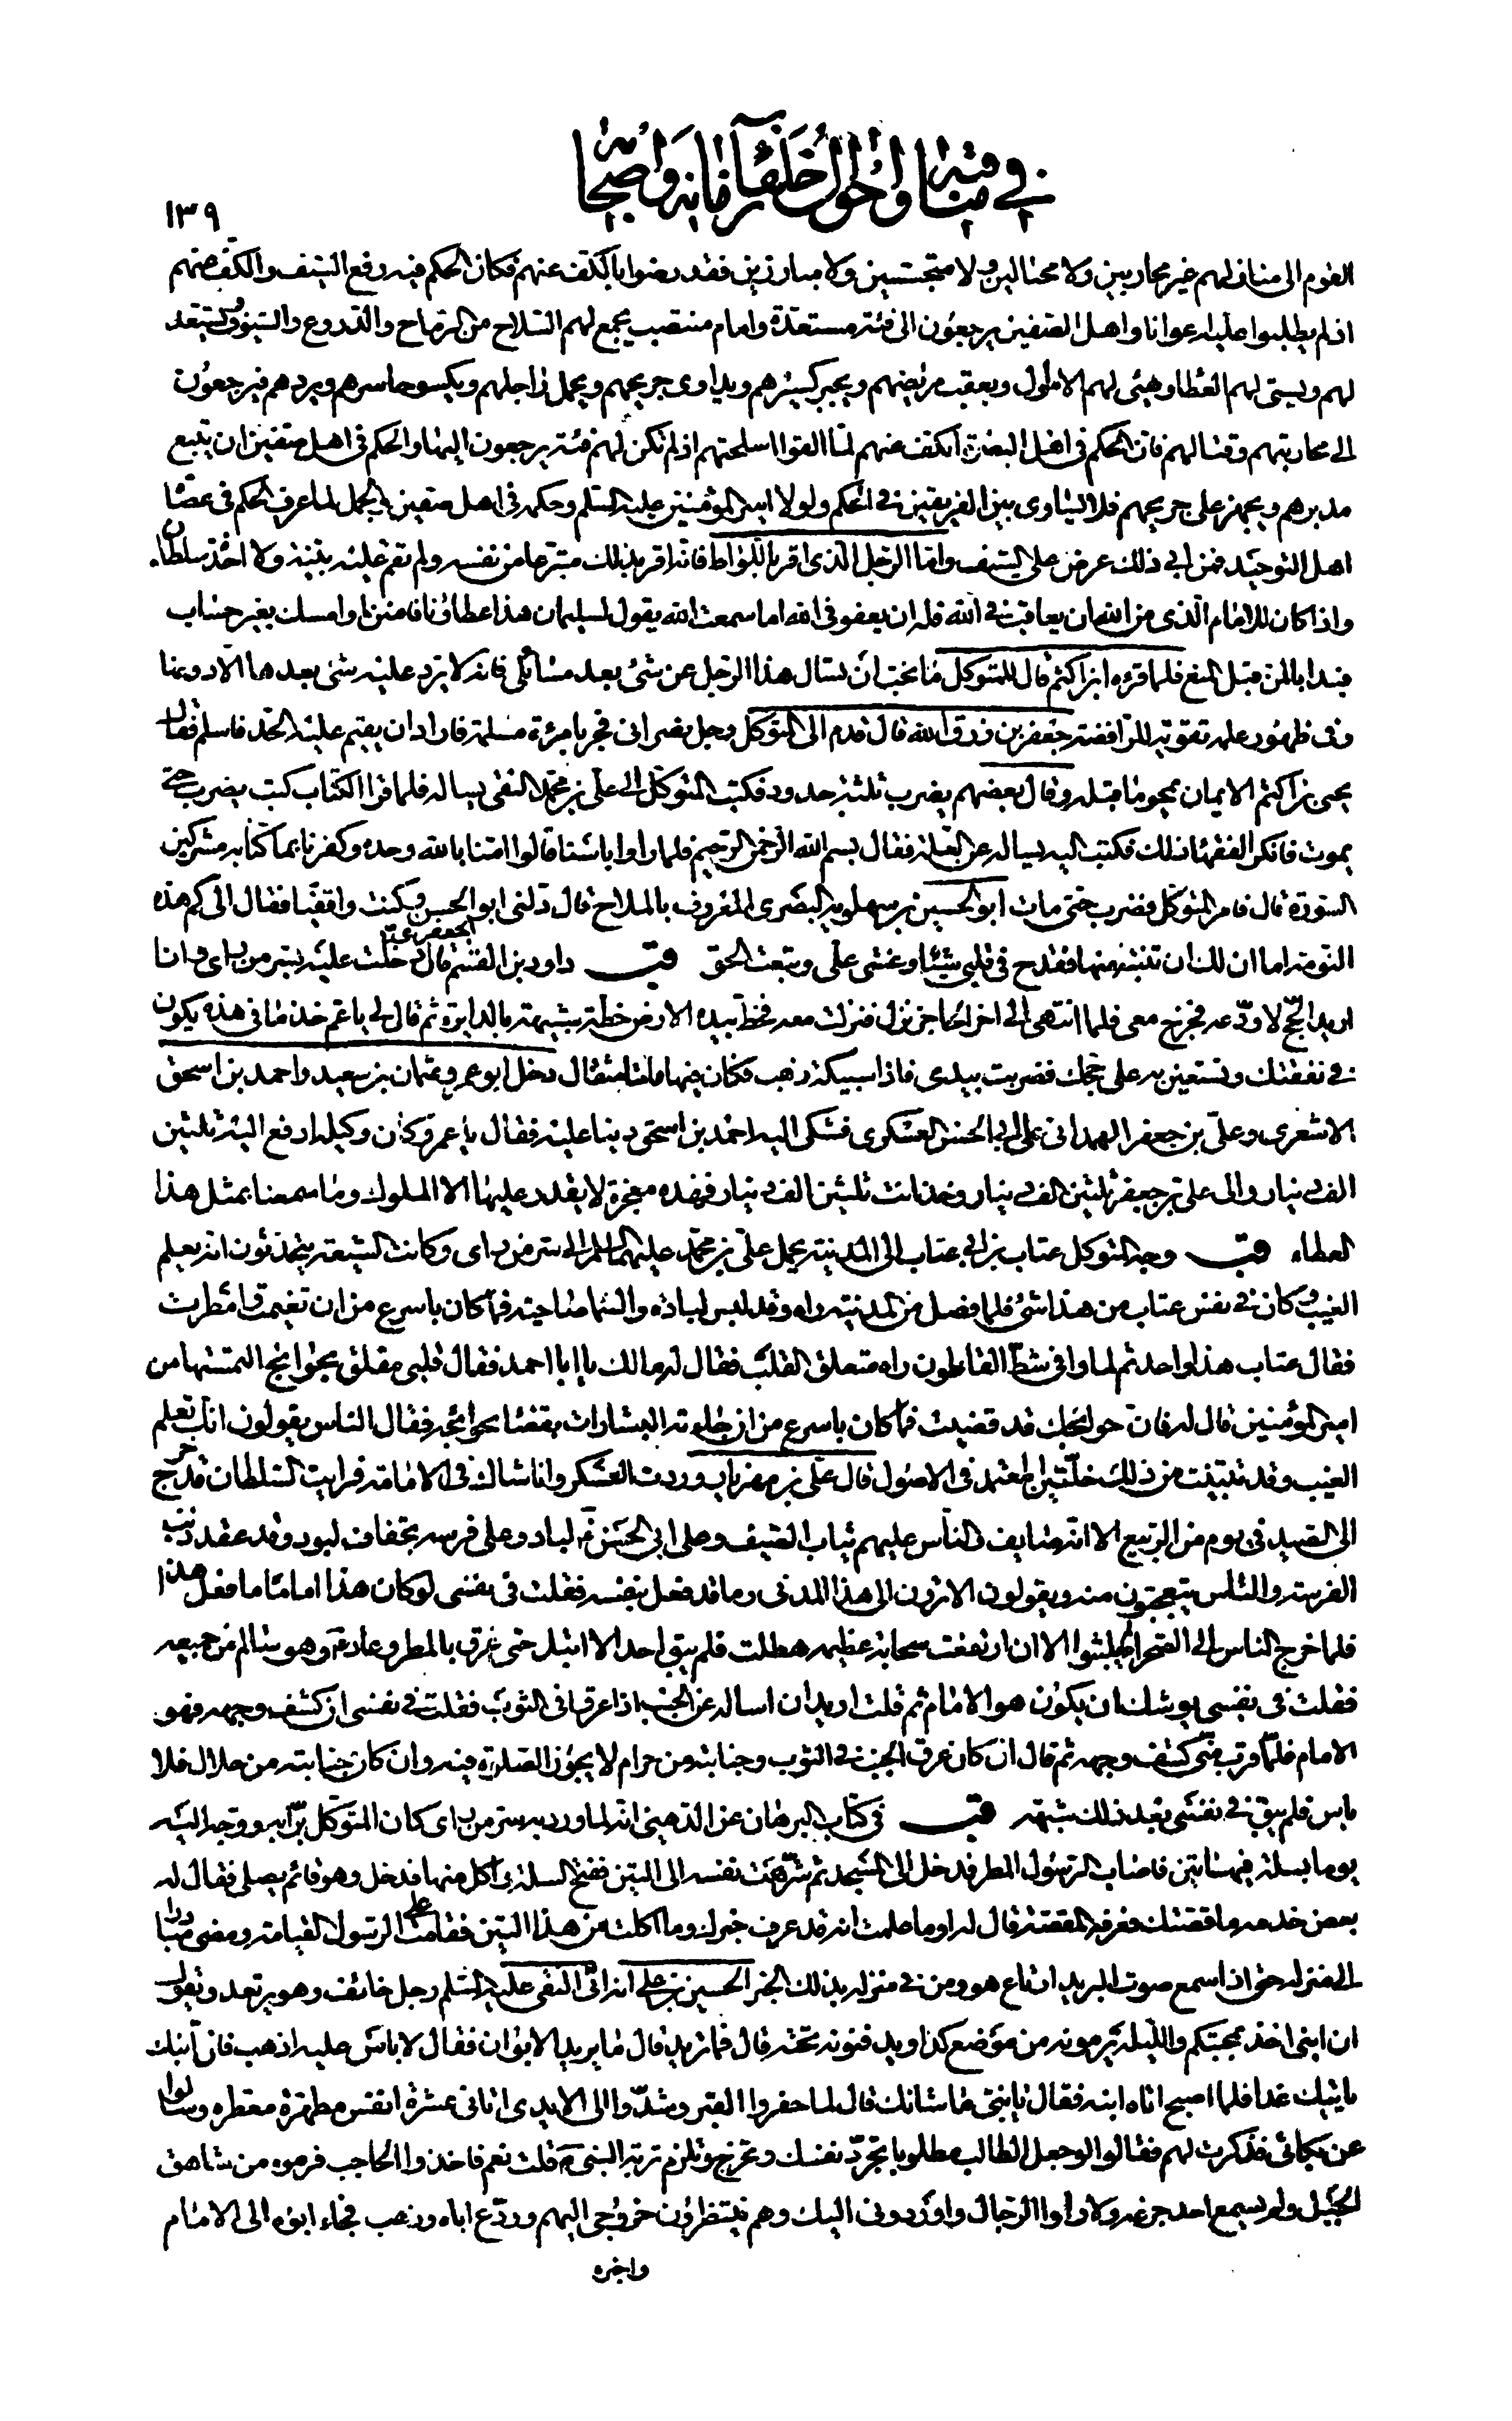 في مناقبه واحوال خلفآء زمانه واصحابه
١٣٩
القوم الى منازلهم غير محاربين ولا محتالين ولا متجسسين ولا مبارزين فقد رضوا بالكف عنهم فكان الحكم فيه رفع السيف والكف عنهم
اذ لم يطلبوا عليه اعوانا واهل الصفين يرجعون الى فئة مستعدة وامام منتصب يجمع لهم السلاح من الرماح والدروع والسيوف ويستعد
لهم ويسنى لهم العطا ويهيئ لهم الاموال ويعقب مريضهم ويجبر كسيرهم ويداوى جريحهم ويحمل راجلهم ويكسو حاسرهم ويردهم فيرجعون
الى محاربتهم وقتالهم فان الحكم فى اهل البصرة الكف عنهم لما القوا اسلحتهم اذ لم تكن لهم فئة يرجعون اليها والحكم فى اهل صفين ان يتبع
مدبرهم ويجهز على جريحهم فلا يساوى بين الفريقين في الحكم ولولا امير المؤمنين عليه السلم وحكمه فى اهل صفين والجمل لما عرف الحكم فى عصاة
اهل التوحيد فمن ابي ذلك عرض على السيف واما الرجل الذى اقر باللواط فانه اقر بذلك متبرعا من نفسه ولم تقم عليه بينة ولا اخذه سلطان
واذا كان للامام الذى من الله ان يعاقب في الله فله ان يعفو فى الله اما سمعت الله يقول لسليمان هذا عطاؤنا فامنن او امسك بغير حساب
فبدا بالمن قبل المنع فلما قرءه ابن اكثم قال للمتوكل ما نحب ان تسال هذا الرجل عن شئ بعد مسائلى فانه لا يرد عليه شئ بعدها الا دونها
وفى ظهور علمه تقوية للرافضة جعفر بن رزق الله قال قدم الى المتوكل رجل نصرانى فجر بامرءة مسلمة فاراد ان يقيم عليه الحد فاسلم فقال
يحيى بن اكثم الايمان يمحو ما قبله وقال بعضهم يضرب ثلثة حدود فكتب المتوكل الى على بن محمد النقى يساله فلما قرا الكتاب كتب يضرب حتى
يموت فانكر الفقهاء ذلك فكتب اليه يساله عن العلة فقال بسم الله الرحمن الرحيم فلما راوا باسنا قالوا امنا بالله وحده وكفرنا بما كنا به مشركين
السورة قال فامر المتوكل فضرب حتى مات ابو الحسين بن سهلويه البصرى المعروف بالملاح قال دلنى ابو الحسن وكنت واقفيا فقال الى كم هذه
النومة اما ان لك ان تنتبه منها فقدح في قلبي شيئا وغشى على وتبعت الحق قب داود بن القسم الجعفرى قال دخلت عليه بسر من راى وانا
اريد الحج لاودعه فخرج معى فلما انتهى الى اخر الحاجز نزل فنزلت معه فخط بيده الارض خطة شبيهة بالدايرة ثم قال لى يا عم خذ ما فى هذه يكون
في نفقتك وتستعين به على حجك فضربت بيدى فاذا سبيكة ذهب فكان فيها مائتا مثقال دخل ابو عمرو عثمان بن سعيد واحمد بن اسحق
الاشعرى وعلى بن جعفر الهمدانى على ابى الحسن العسكرى فشكى اليه احمد بن اسحق دينا عليه فقال يا عمرو وكان وكيله ادفع اليه ثلثين
الف دينار والى على بن جعفر ثلثين الف دينار وخذ انت ثلثين الف دينار فهذه معجزة لا يقدر عليها الا الملوك وما سمعنا بمثل هذا
العطاء قب وجه المتوكل عتاب بن ابي عتاب الى المدينة يحمل على بن محمد عليهما السلم الى سر من راى وكانت الشيعة يتحدثون انه يعلم
الغيب وكان في نفس عتاب من هذا شئ فلما فصل من المدينة راه وقد لبس لبادة والسما صاحية فما كان باسرع من ان تغيمت وامطرت
فقال عتاب هذا واحد ثم لما وافى شط القاطول راه متعلق القلب فقال له مالك يا ابا احمد فقال قلبى مقلق بحوايج التمستها من
امير المؤمنين قال له فان حوائجك قد قضيت فما كان باسرع من ان جاءته البشارات بقضاء حوائجه فقال الناس يقولون انك تعلم
الغيب وقد تبينت من ذلك خلتين المعتمد فى الاصول قال على بن مهزيار وردت العسكر وانا شاك فى الامامة فرايت السلطان قد خرج
الى الصيد فى يوم من الربيع الا انه صايف والناس عليهم ثياب الصيف وعلى ابى الحسن لباد وعلى فرسه تجفاف لبود وقد عقد ذنب
الفرسة والناس يتعجبون منه ويقولون الا ترون الى هذا المدنى وما قد فعل بنفسه فقلت فى نفسى لو كان هذا اماما ما فعل هذا
فلما خرج الناس الى الصحرا لم يلبثوا الا ان ارتفعت سحابة عظيمة هطلت فلم يبق احد الا ابتل حتى غرق بالمطر وعاد ع وهو سالم من جميعه
فقلت فى نفسى يوشك ان يكون هو الامام ثم قلت اريد ان اساله عن الجنب اذا عرق فى الثوب فقلت في نفسى ان كشف وجهه فهو
الامام فلما قرب منى كشف وجهه ثم قال ان كان عرق الجنب في الثوب وجنابته من حرام لا يجوز الصلوة فيه وان كان جنابته من حلال فلا
باس فلم يبق في نفسى بعد ذلك شبهة قب فى كتاب البرهان عن الذهبى انه لما ورد به سر من راى كان المتوكل برا به ووجه اليه
يوما بسلة فيها تين فاصاب الرسول المطر فدخل الى المسجد ثم شرهت نفسه الى التين ففتح السلة واكل منها فدخل وهو قائم يصلى فقال له
بعض خدمه ما قصتك فعرفه القصة قال له او ما علمت انه قد عرف خبرك وما اكلت من هذا التين فقامت على الرسول القيامة ومضى مبادرا
الى منزله حتى اذا سمع صوت البريد ارتاع هو ومن في منزله بذلك الخبر الحسين بن على انه اتى النقى عليه السلم رجل خائف وهو يرتعد ويقول
ان ابنى اخذ بمحبتكم والليلة يرمونه من موضع كذا ويدفنونه تحته قال فما تريد قال ما يريد الابوان فقال لا باس عليه اذهب فان ابنك
ياتيك غدا فلما اصبح اتاه ابنه فقال يا بنى ما شانك قال لما حفروا القبر وشدوا لى الايدى اتانى عشرة انفس مطهرة معطرة وسالوا
عن بكائى فذكرت لهم فقالوا لو جعل الطالب مطلوبا تجرد نفسك وتخرج وتلزم تربة النبى ص قلت نعم فاخذوا الحاجب فرموه من شاهق
الجبل ولم يسمع احد جزعه ولا راوا الرجال واوردونى اليك وهم ينتظرون خروجى اليهم وودع اباه وذهب فجاء ابوه الى الامام
واخبره